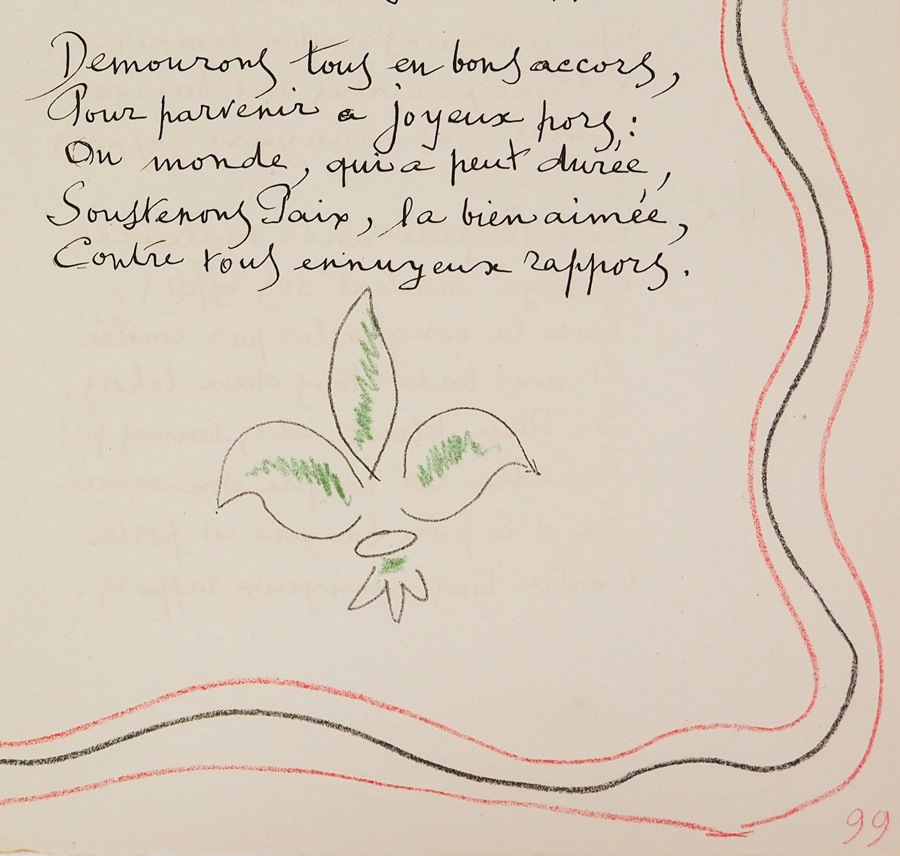 Demourons tous en bons accors,
Pour parvenir a joyeux pors:
Ou monde, qui a peut durée,
Soustenons Paix, la bien aimée,
Contre tous ennuyeux rappors.
99